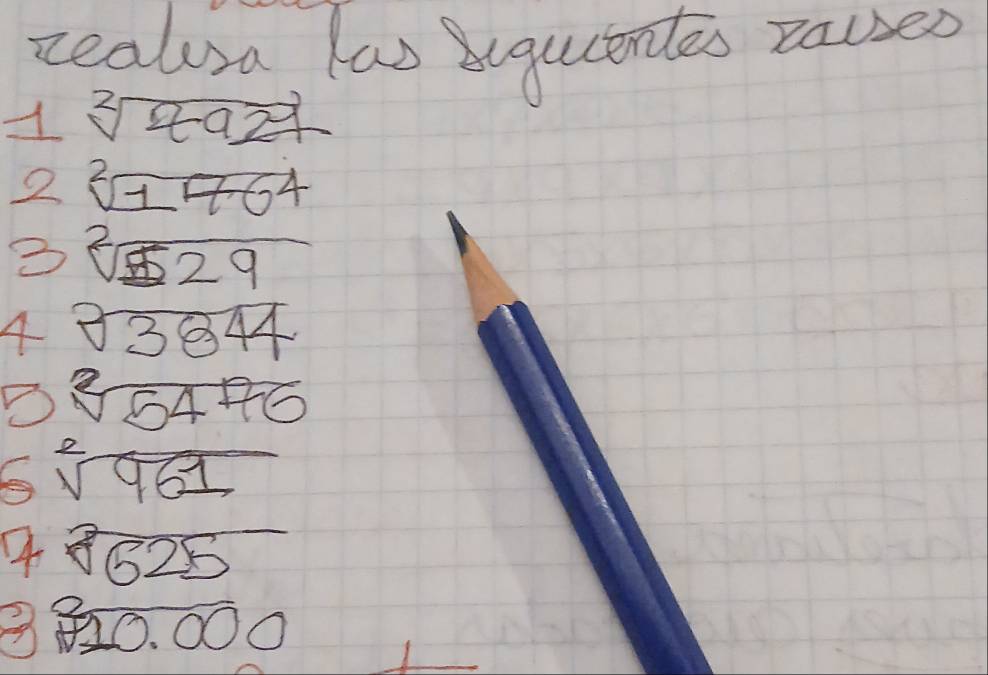 realisa las siguientes raises
1 ²√7921
2 ²√1764
3 ²√529
4 ²√3844
5 ²√5476
6 ²√961
7 ²√625
8 ²√10.000